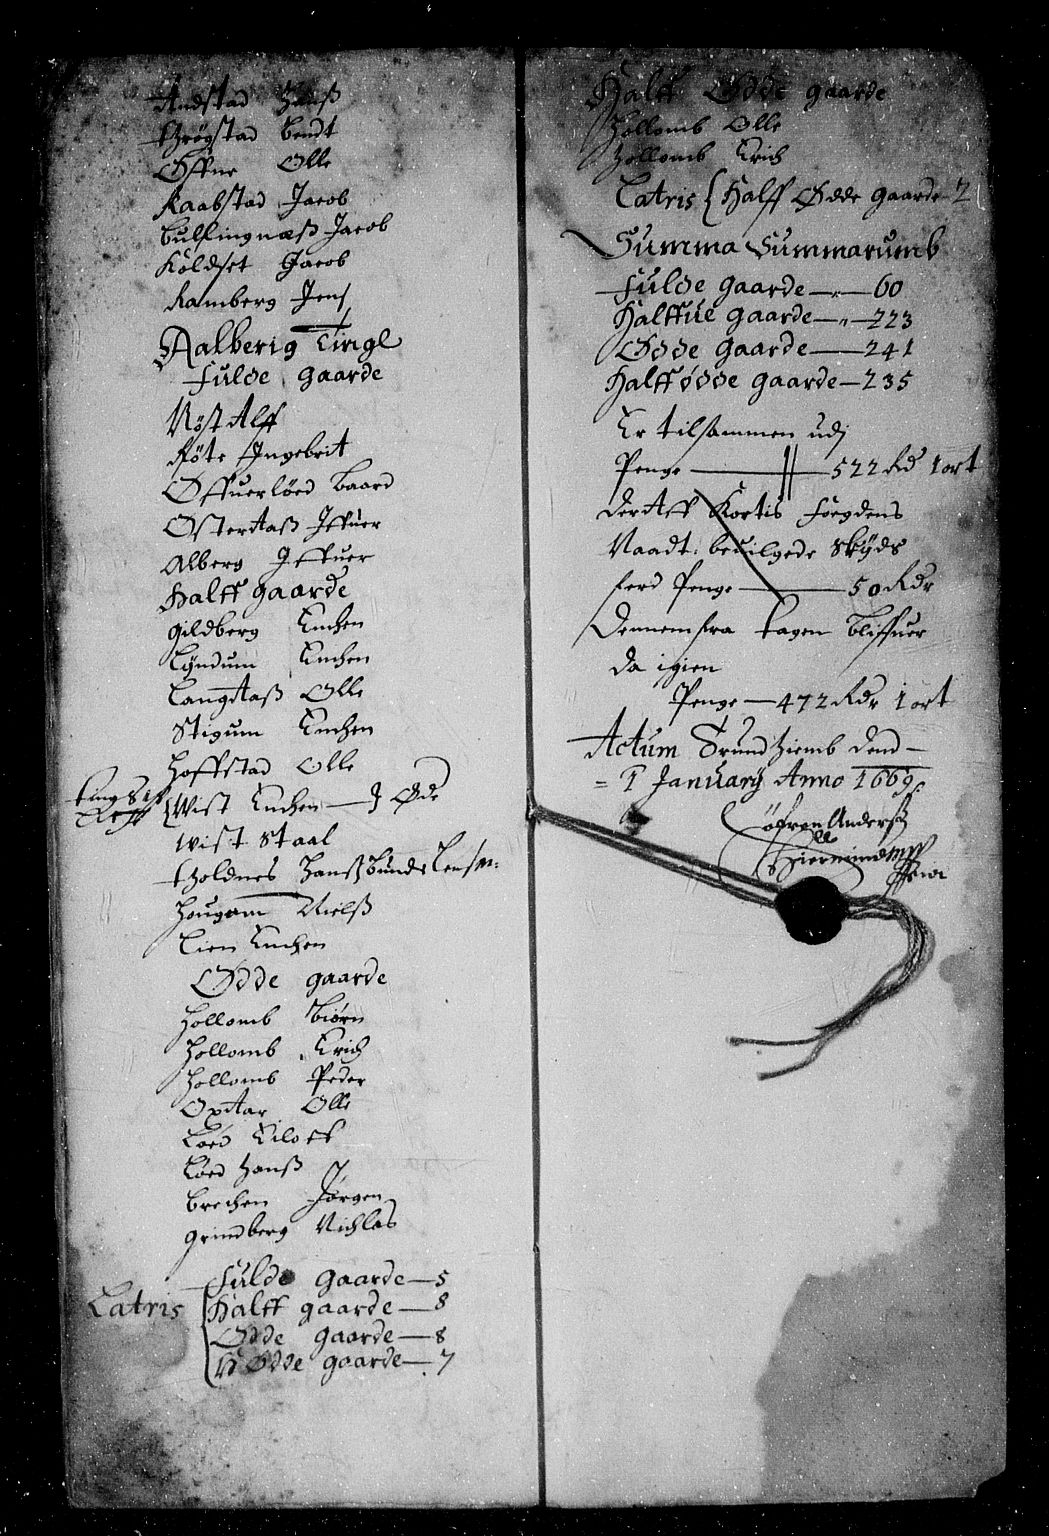 Andstad Hanß
thrögstad Bendt
Öffne Olle
Raabstad Jacob
Bullingnæß Jacob
Koldset Jacob
Ramberg Jens
Aalberig Tingl
Fulde gaarde
Nöst Alff
Röte Ingebrit
Öffuerlöed Baard
Osteraaß Iffuer
Alberg Iffuer
Halff gaarde
Gildberg Enchen
Lyndum Enchen
Langaaß Olle
Stigum Enchen
Hoffstad Olle
Wist Enchen — J Øde
Wist Staal
tholdnes Hanß Bunde Lensm:
Hougom Nielß
Lien Enchen
Ødde gaarde
Hollomb Biörn
Hollomb Erich
Hollomb Peder
Opaar Olle
Löed Eiloff
Löed Hanß
Brechen Jörgen
Grindberg Nichlas
Latris
Fulde gaarde — 5
Halff gaarde — 8
Ødde gaarde — 8
H Ødde gaarde — 7
Halff Ødde gaarde
Hollomb Olle
Hollomb Erich
Latris { Halff Ødde gaarde 2
Summa Summarumb
Fulde gaarde — 60
Halffue gaarde — 223
Ødde gaarde — 241
Halff ødde gaarde — 235
Er tilsammen udj
Penge — 522 Rd 1 ort
Deraff Kortis foegdens
Naadt: beuilgede Skyds
ferd Penge — 50 Rdr
Dennemfra tagen bliffuer
da igien
Penge — 472 Rdr 1 ort
Actum Trundhiemb dend —
= 1 January Anno 1669
Söfren Anderß
Hiermind